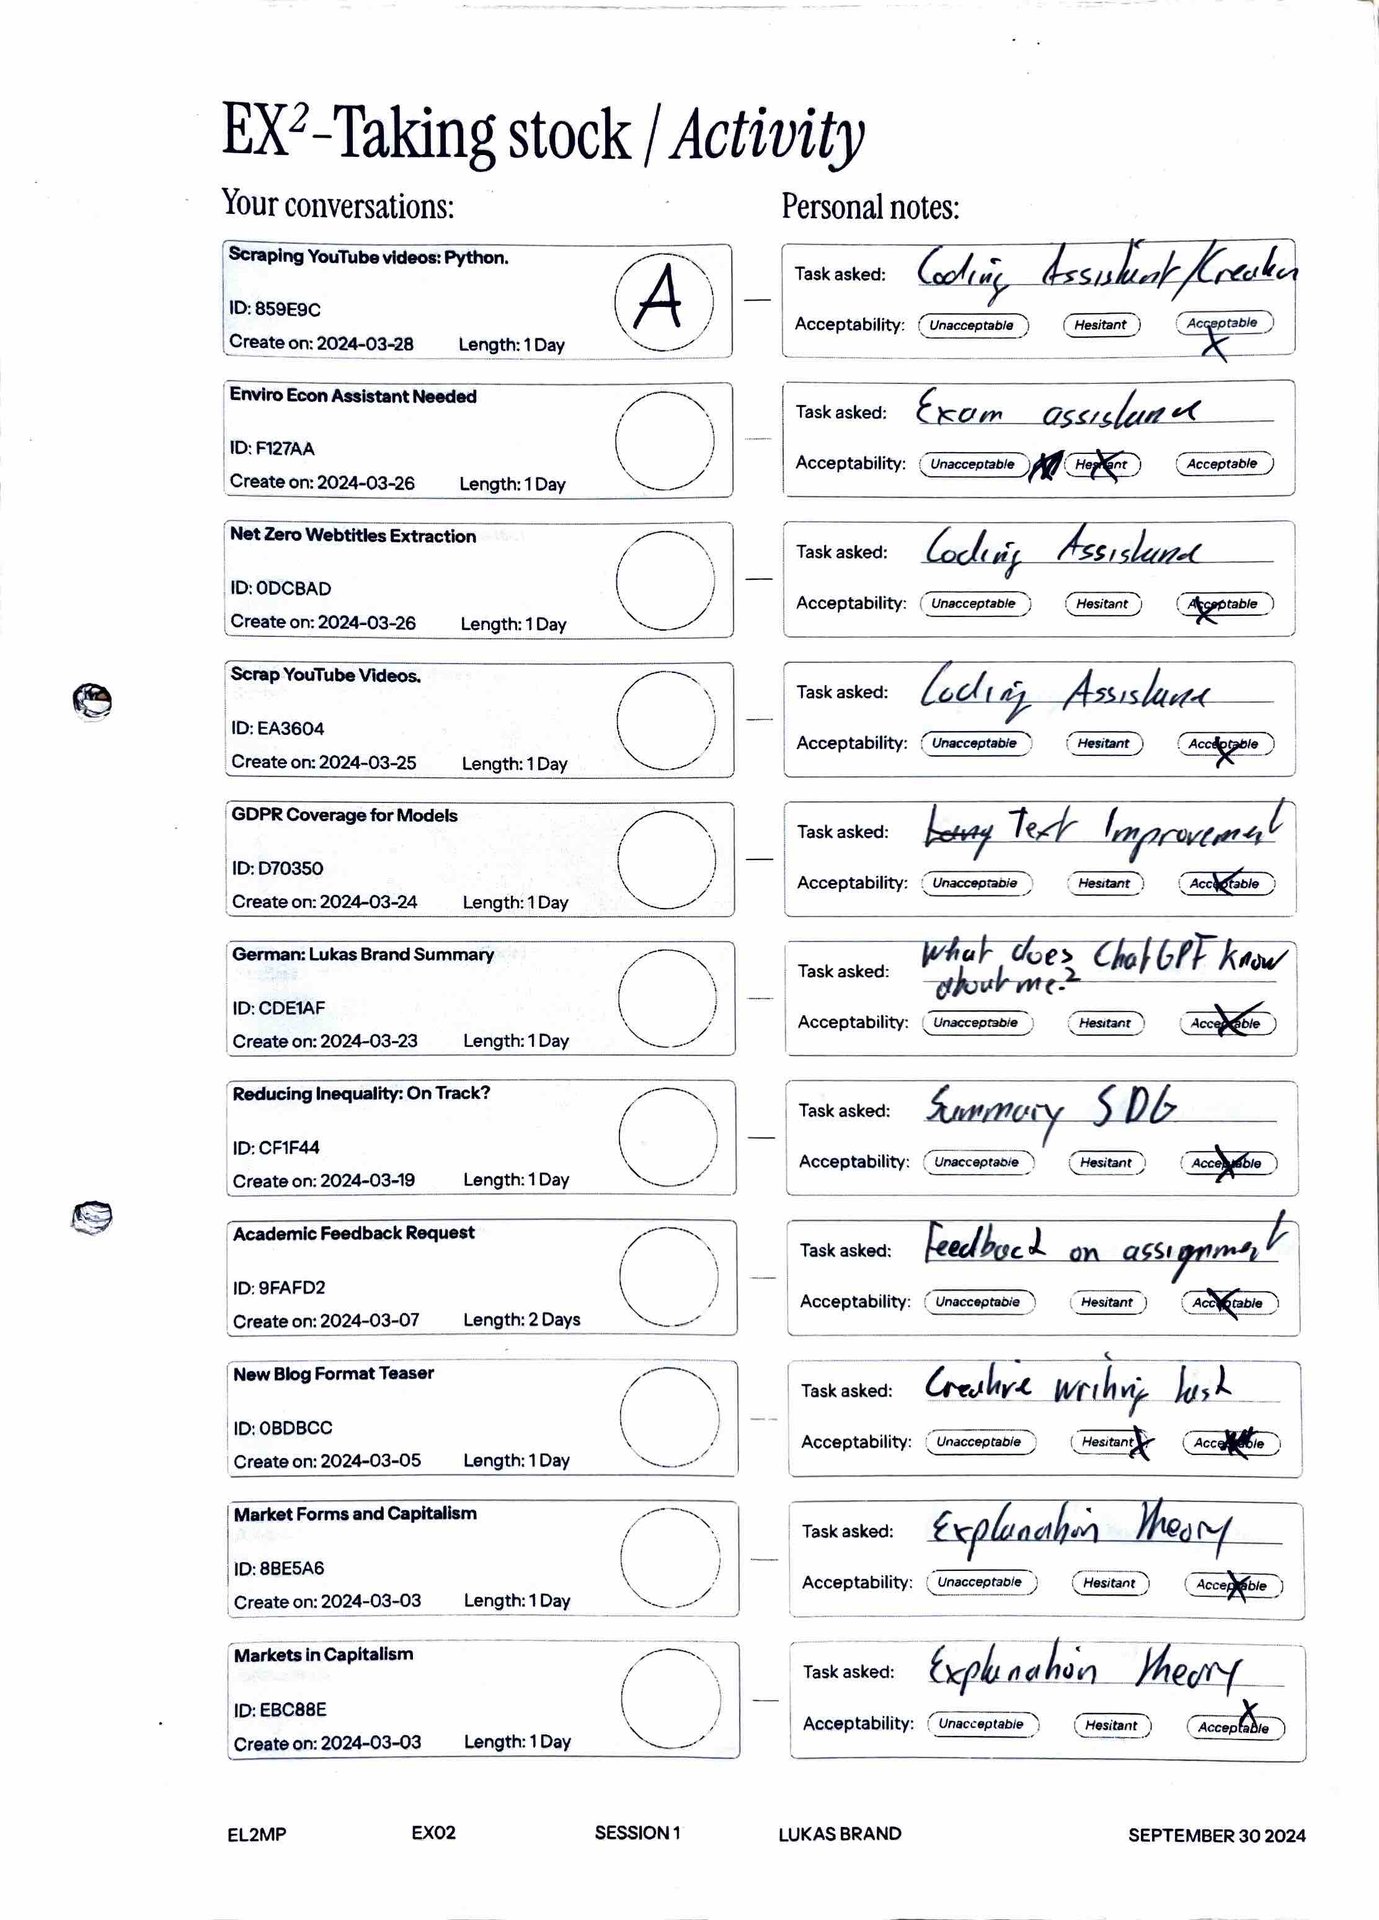 EX²-Taking stock / Activity
Your conversations:
Personal notes:
Scraping YouTube videos: Python.
ID: 859E9C
Create on: 2024-03-28 Length: 1 Day
A
Task asked: Coding Assistant/Creator
Acceptability: Unacceptable Hesitant Acceptable
X
Enviro Econ Assistant Needed
ID: F127AA
Create on: 2024-03-26 Length: 1 Day
Task asked: Exam assistance
Acceptability: Unacceptable Hesitant Acceptable
Net Zero Webtitles Extraction
ID: 0DCBAD
Create on: 2024-03-26 Length: 1 Day
Task asked: Coding Assistance
Acceptability: Unacceptable Hesitant Acceptable
Scrap YouTube Videos.
ID: EA3604
Create on: 2024-03-25 Length: 1 Day
Task asked: Coding Assistance
Acceptability: Unacceptable Hesitant Acceptable
GDPR Coverage for Models
ID: D70350
Create on: 2024-03-24 Length: 1 Day
Task asked: Text Improvement
Acceptability: Unacceptable Hesitant Acceptable
German: Lukas Brand Summary
ID: CDE1AF
Create on: 2024-03-23 Length: 1 Day
Task asked: What does ChatGPT know
about me?
Acceptability: Unacceptable Hesitant Acceptable
Reducing Inequality: On Track?
ID: CF1F44
Create on: 2024-03-19 Length: 1 Day
Task asked: Summary SDG
Acceptability: Unacceptable Hesitant Acceptable
Academic Feedback Request
ID: 9FAFD2
Create on: 2024-03-07 Length: 2 Days
Task asked: Feedback on assignment
Acceptability: Unacceptable Hesitant Acceptable
New Blog Format Teaser
ID: 0BDBCC
Create on: 2024-03-05 Length: 1 Day
Task asked: Creative writing task
Acceptability: Unacceptable Hesitant Acceptable
Market Forms and Capitalism
ID: 8BE5A6
Create on: 2024-03-03 Length: 1 Day
Task asked: Explanation theory
Acceptability: Unacceptable Hesitant Acceptable
Markets in Capitalism
ID: EBC88E
Create on: 2024-03-03 Length: 1 Day
Task asked: Explanation theory
Acceptability: Unacceptable Hesitant Acceptable
EL2MP EX02 SESSION 1 LUKAS BRAND SEPTEMBER 30 2024